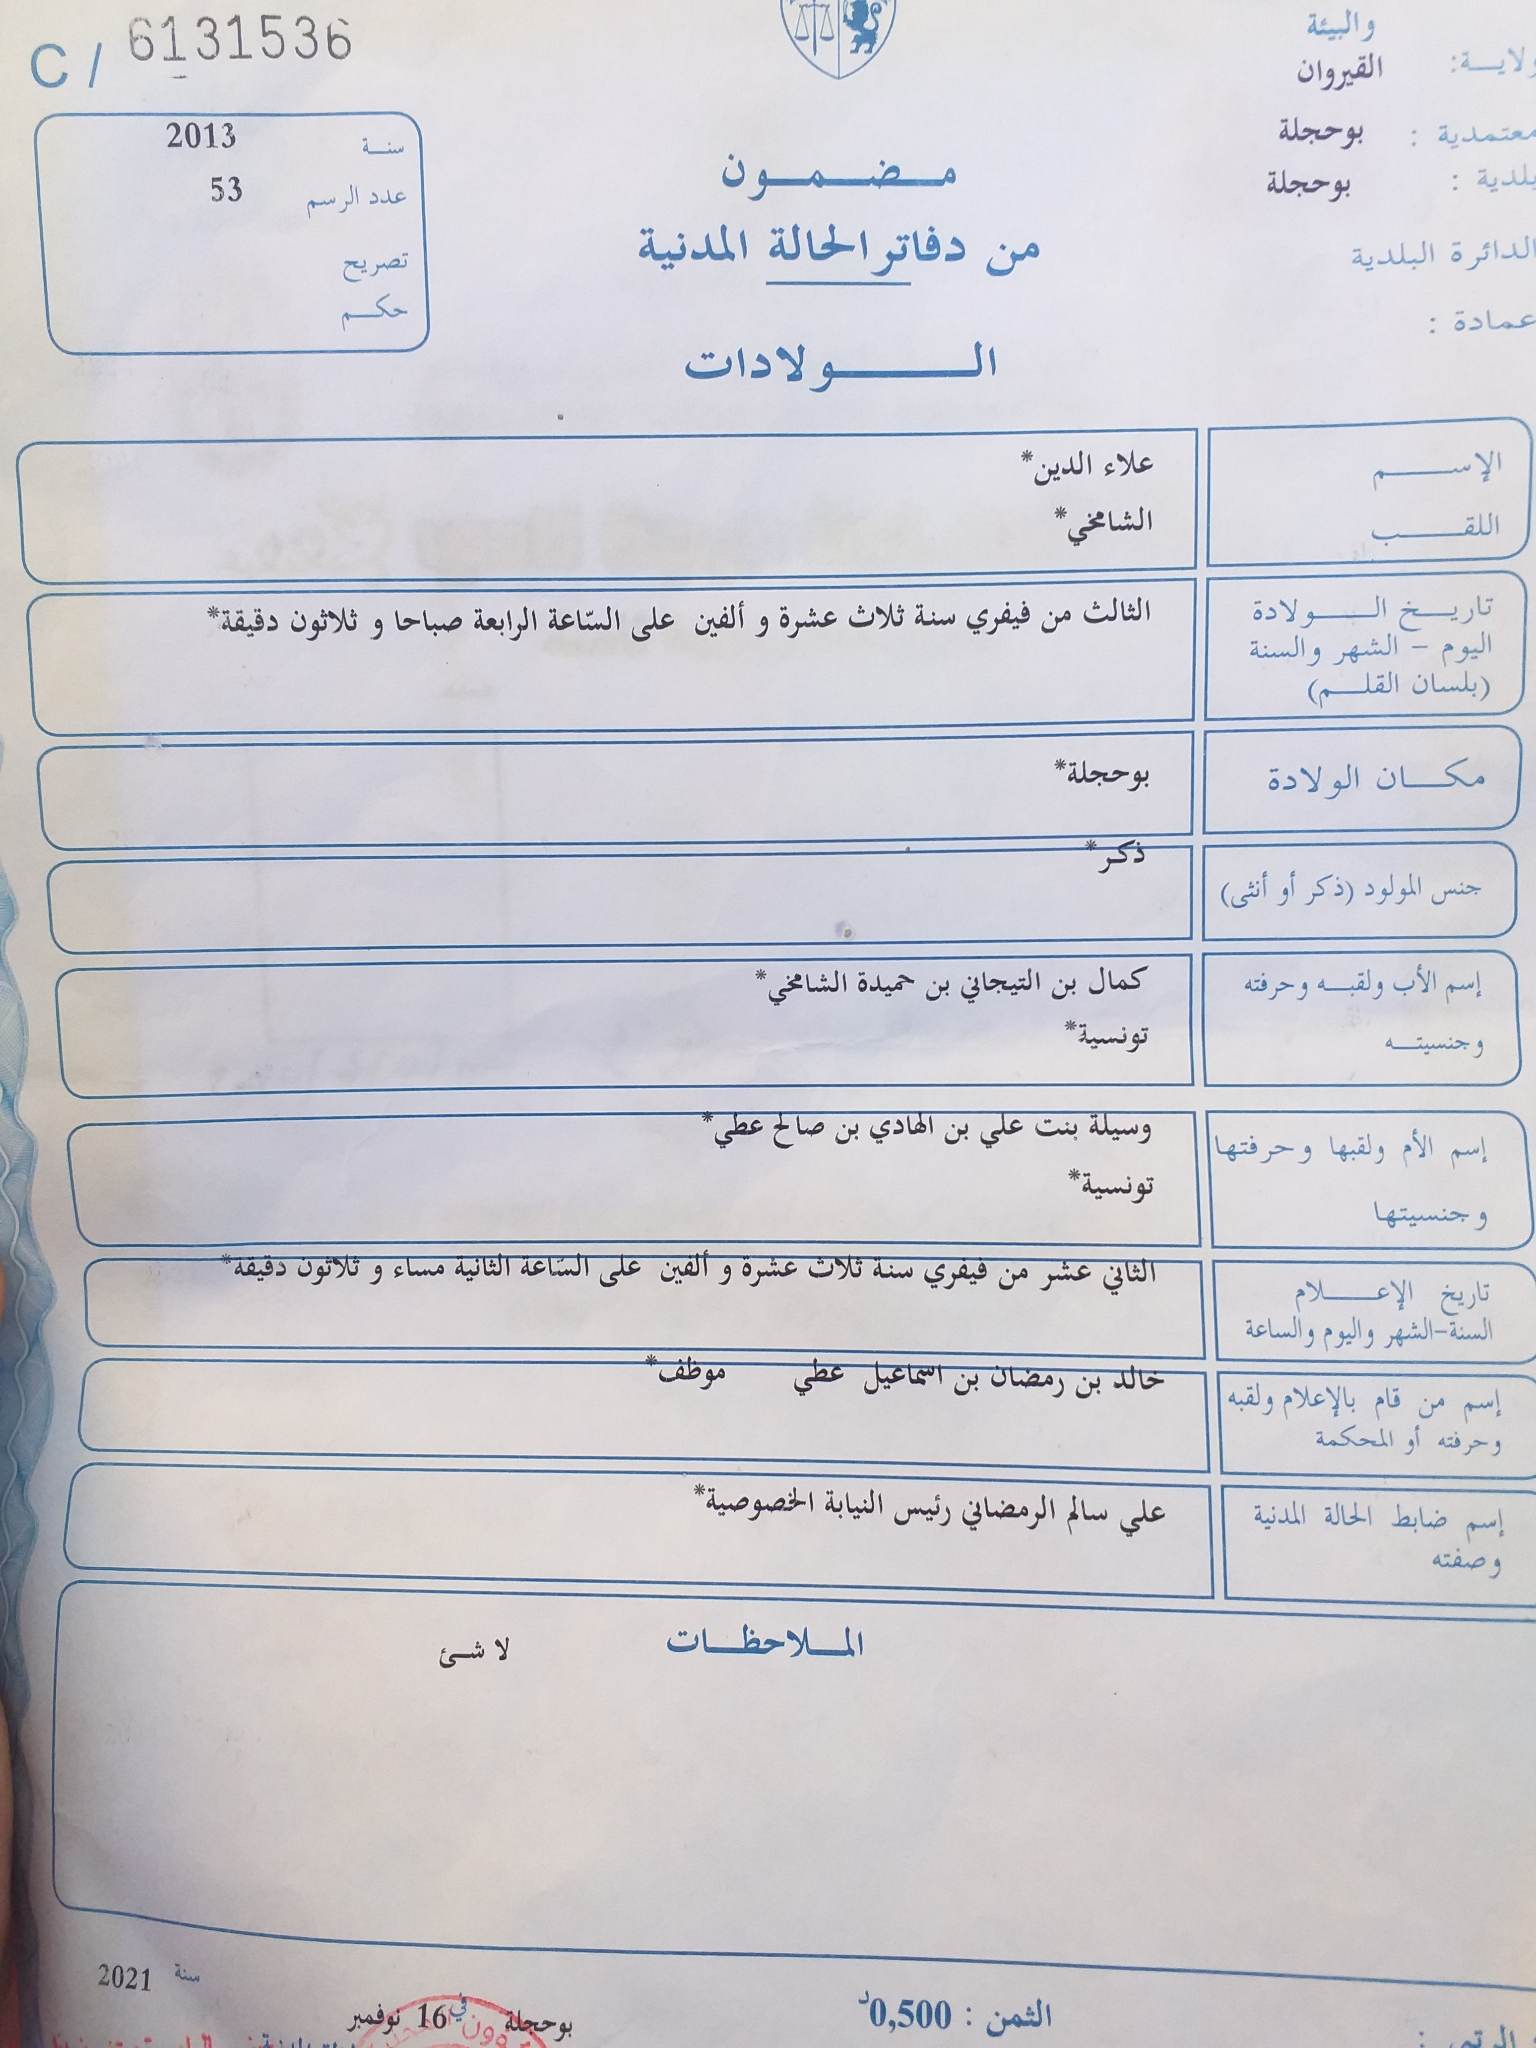 C / 6131536
والبيئة
ولاية: القيروان
معتمدية : بوحجلة
بلدية : بوحجلة
الدائرة البلدية
عمادة :
سنة 2013
عدد الرسم 53
تصريح
حكم
مضمون
من دفاتر الحالة المدنية
الولادات
الإسم علاء الدين*
اللقب الشامخي*
تاريخ الولادة
اليوم - الشهر والسنة
(بلسان القلم)
الثالث من فيفري سنة ثلاث عشرة و ألفين على السّاعة الرابعة صباحا و ثلاثون دقيقة*
مكان الولادة بوحجلة*
جنس المولود (ذكر أو أنثى) ذكر*
إسم الأب ولقبه وحرفته كمال بن التيجاني بن حميدة الشامخي*
وجنسيته تونسية*
إسم الأم ولقبها وحرفتها وسيلة بنت علي بن الهادي بن صالح عطي*
وجنسيتها تونسية*
تاريخ الإعلام
السنة-الشهر واليوم والساعة
الثاني عشر من فيفري سنة ثلاث عشرة و ألفين على السّاعة الثانية مساء و ثلاثون دقيقة*
إسم من قام بالإعلام ولقبه
وحرفته أو المحكمة
خالد بن رمضان بن اسماعيل عطي موظف*
إسم ضابط الحالة المدنية
وصفته
علي سالم الرمضاني رئيس النيابة الخصوصية*
الملاحظات لا شئ
سنة 2021
بوحجلة في 16 نوفمبر
الثمن : 0,500د